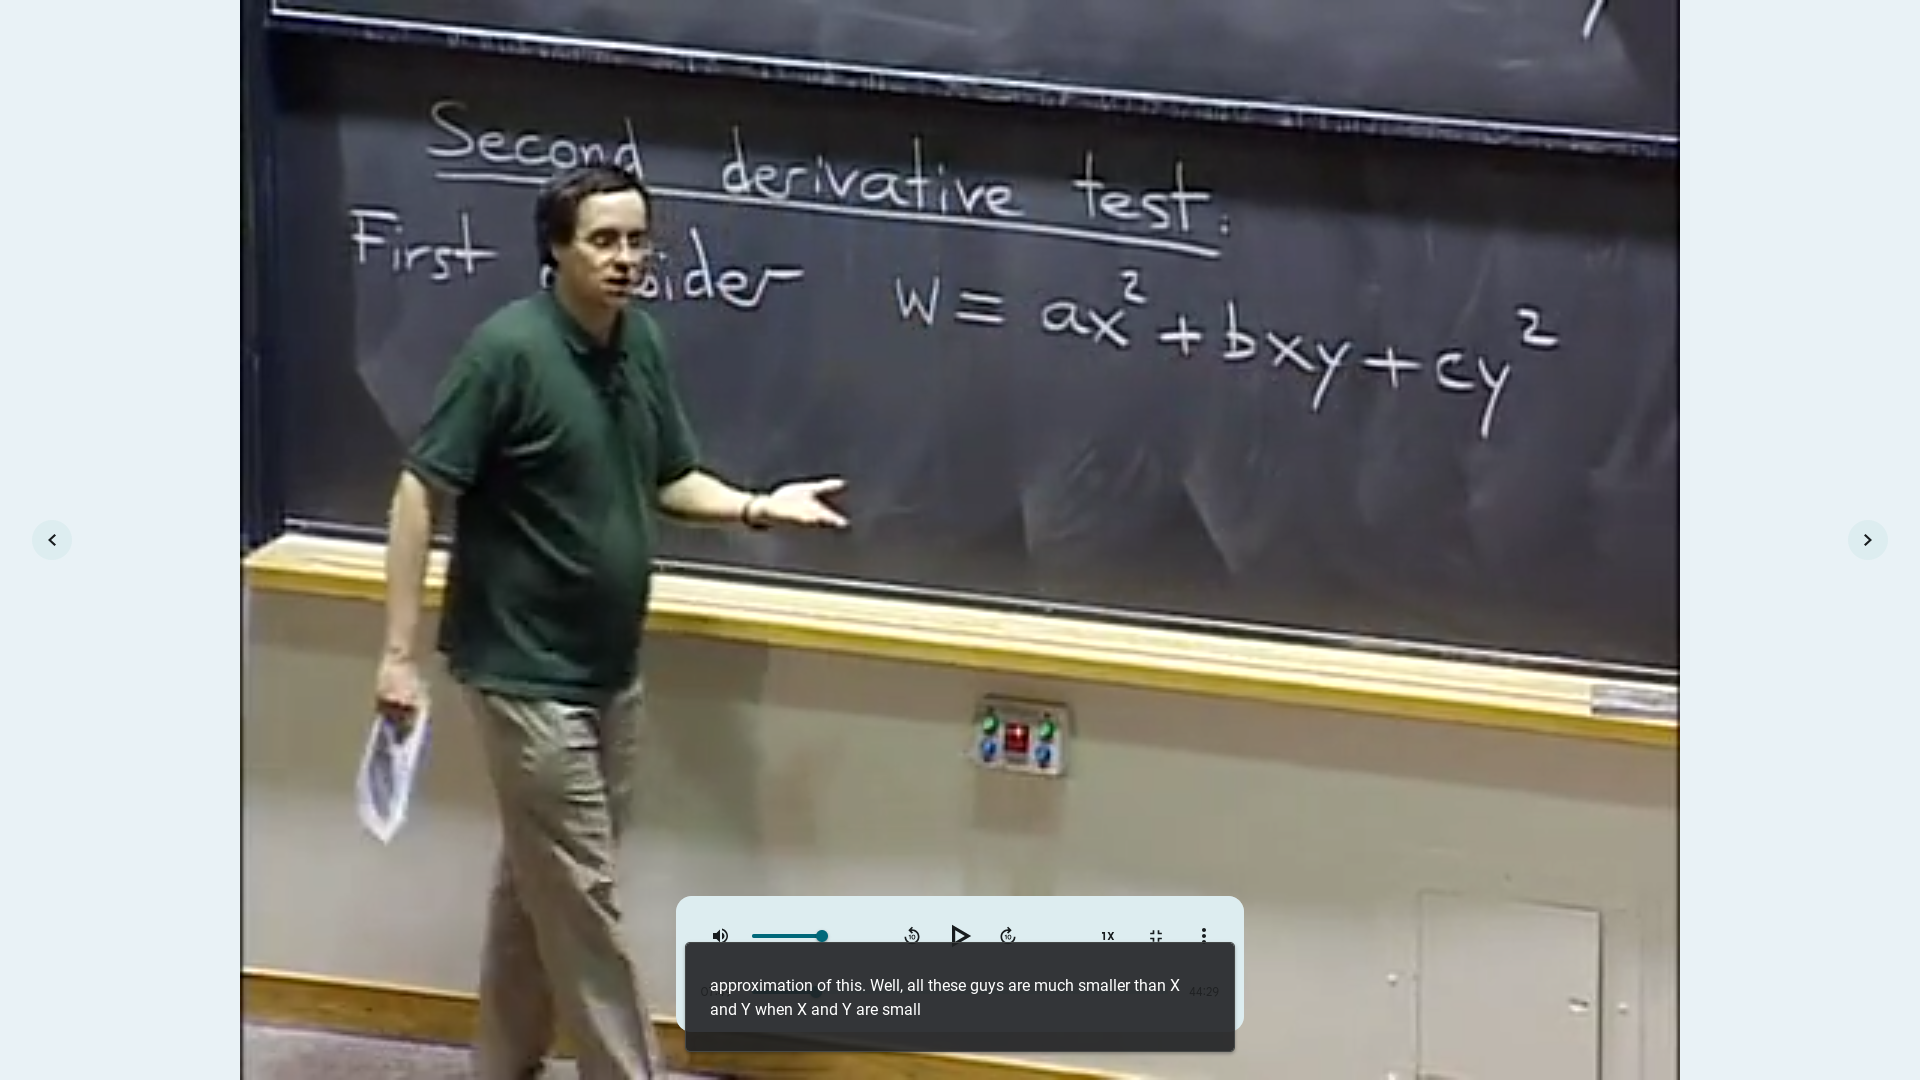 Second derivative test:
First sider w = ax² + bxy + cy²
1X
approximation of this. Well, all these guys are much smaller than X
and Y when X and Y are small
44:29